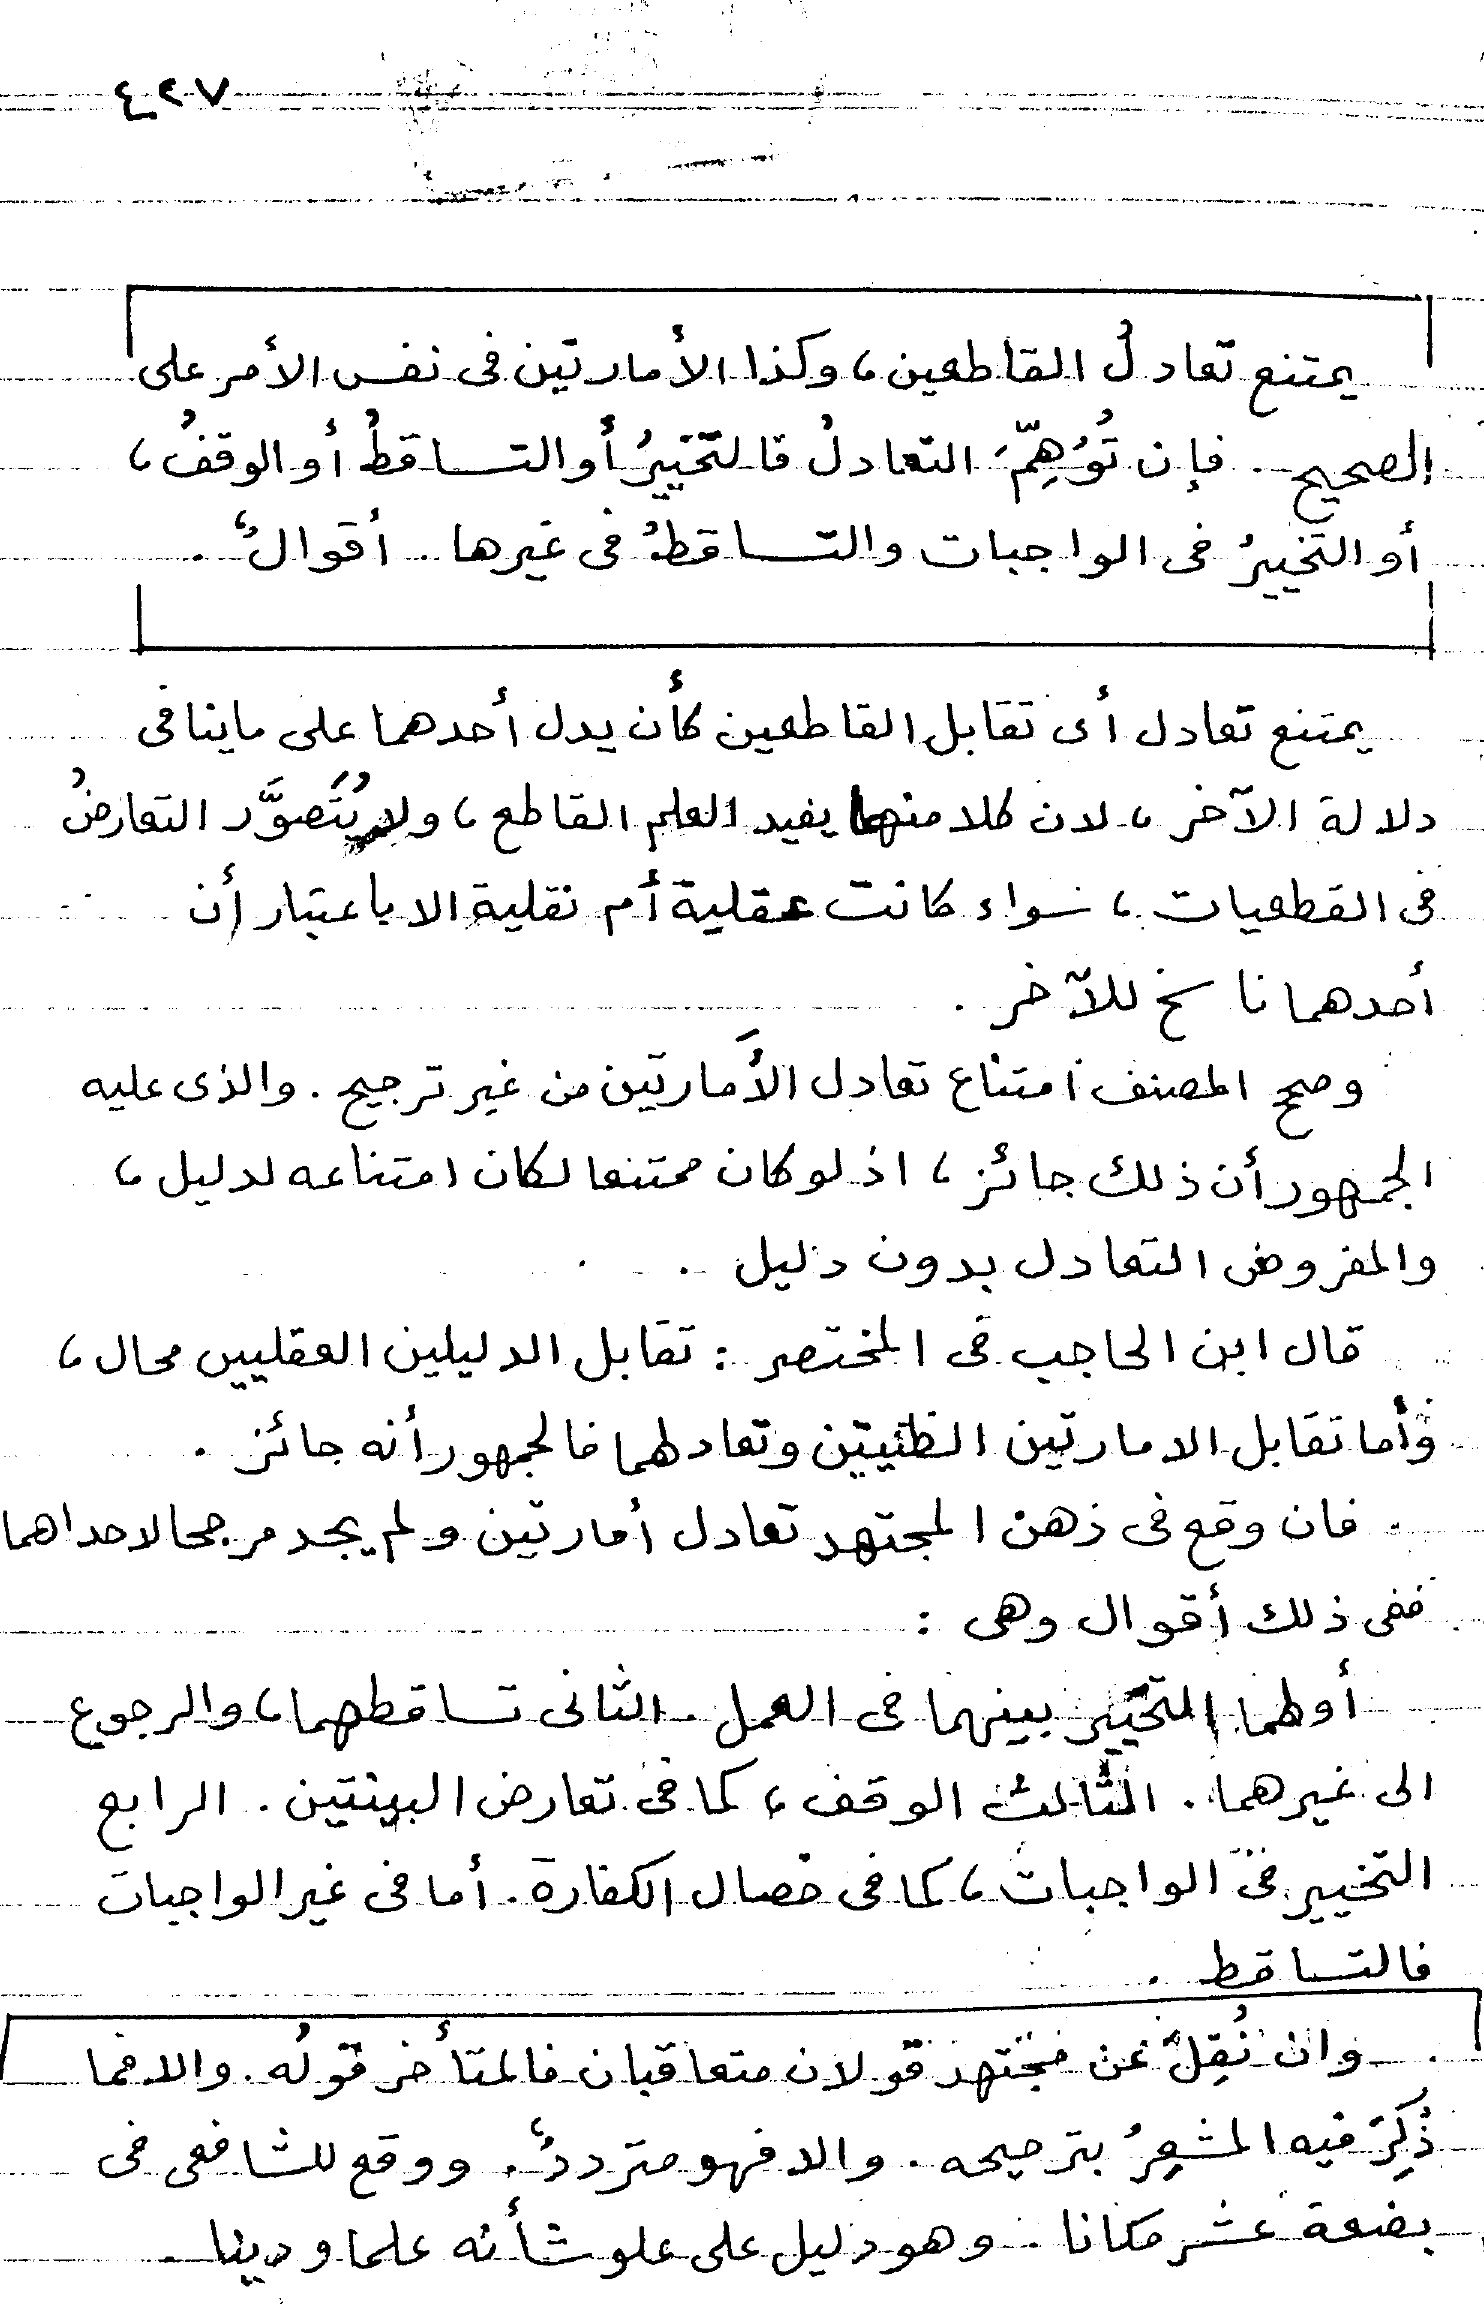 ٤٢٧
يمتنع تعادلُ القاطعين، وكذا الأمارتين فى نفس الأمر على
الصحيح. فإن تُوُهِّمَ التعادلُ فالتخييرُ أو التساقطُ أو الوقفُ،
أو التخييرُ فى الواجبات والتساقطُ فى غيرها. أقوالٌ.
يمتنع تعادل أى تقابل القاطعين كأن يدل أحدهما على ماينافى
دلالة الآخر، لان كلا منهما يفيد العلم القاطع، ولا يُتَصوَّر التعارضُ
فى القطعيات، سواء كانت عقلية أم نقلية الا باعتبار أن
أحدهما ناسخ للآخر.
وصحح المصنف امتناع تعادل الأمارتين من غير ترجيح. والذى عليه
الجمهور أن ذلك جائز، اذ لو كان ممتنعا لكان امتناعه لدليل،
والمفروض التعادل بدون دليل.
قال ابن الحاجب فى المختصر: تقابل الدليلين العقليين محال،
وأما تقابل الامارتين الظنيتين وتعادلهما فالجمهور أنه جائز.
فان وقع فى ذهن المجتهد تعادل أمارتين ولم يجد مرجحا لاحداهما
ففى ذلك أقوال وهى:
أولهما التخيير بينهما فى العمل. الثانى تساقطهما، والرجوع
الى غيرهما. الثالث الوقف، كما فى تعارض البينتين. الرابع
التخيير فى الواجبات، كما فى خصال الكفارة. أما فى غير الواجبات
فالتساقط.
وان نُقِلَ عن مجتهد قولان متعاقبان فالمتأخر قولُه. والا فما
ذُكِرَ فيه المشعِرُ بترجيحه. والا فهو مترددٌ. ووقع للشافعى فى
بضعة عشر مكانا. وهو دليل على علو شأنه علما ودينا.